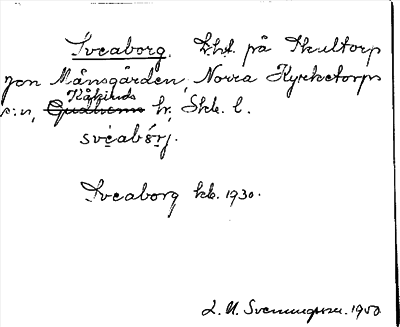 Sveaborg. Lht. på Skultorp
från Månsgården, Norra Kyrketorps
Kåkinds
s:n, Gudhems hr, Skb. l.
svèabǒrj.
Sveaborg kb. 1930.
L. M. Svenungsson. 1950